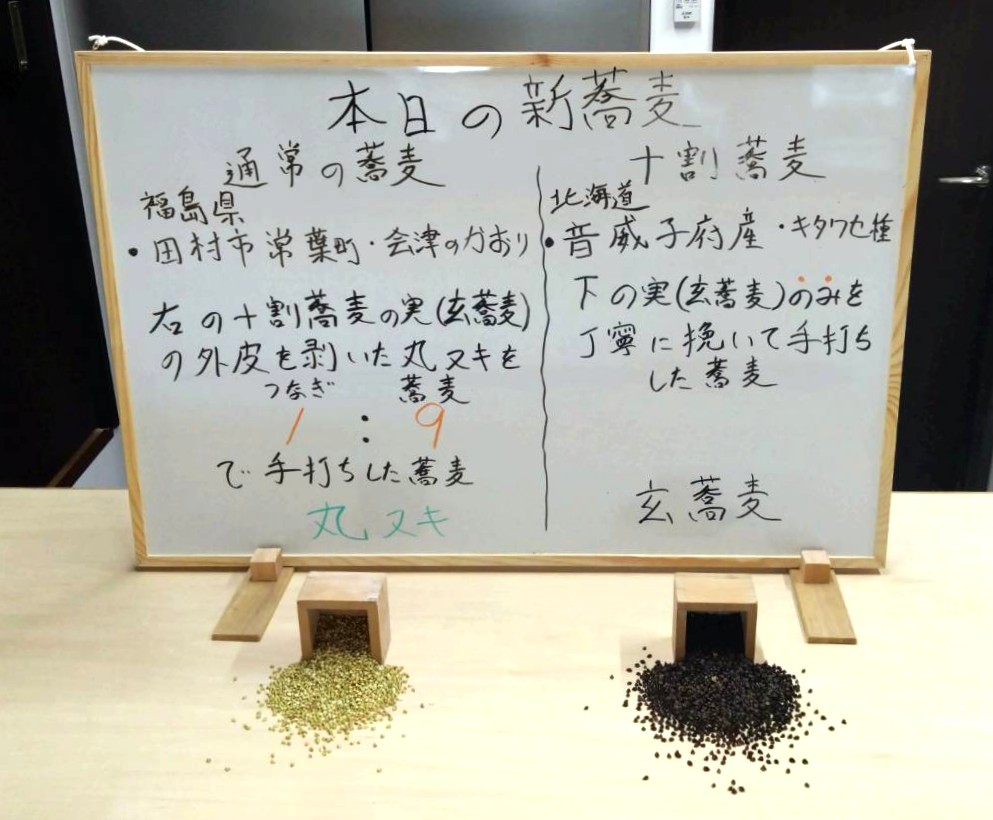 本日の新蕎麦
通常の蕎麦
福島県
・田村市常葉町・会津のかおり
右の十割蕎麦の実(玄蕎麦)
の外皮を剥いた丸ヌキを
つなぎ 蕎麦
1 : 9
で手打ちした蕎麦
丸ヌキ
十割蕎麦
北海道
・音威子府産・キタワセ種
下の実(玄蕎麦)のみを
丁寧に挽いて手打ち
した蕎麦
玄蕎麦